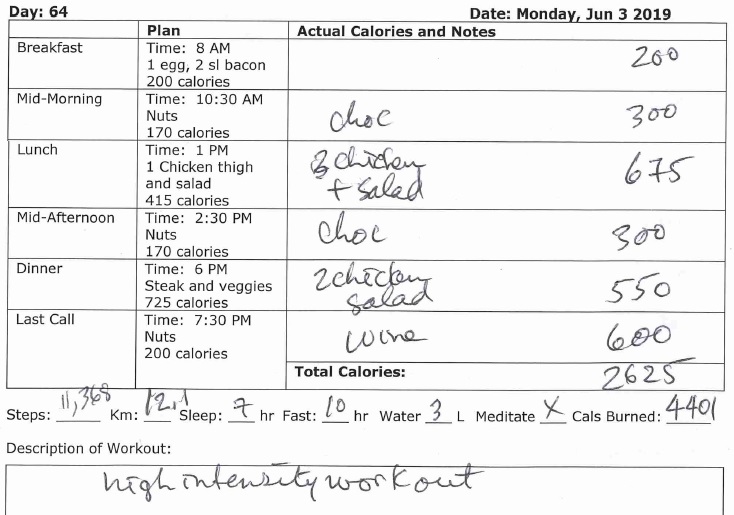 Day: 64 Date: Monday, Jun 3 2019
Plan Actual Calories and Notes
Breakfast Time: 8 AM 200
1 egg, 2 sl bacon
200 calories
Mid-Morning Time: 10:30 AM choc 300
Nuts
170 calories
Lunch Time: 1 PM 3 chicken 675
1 Chicken thigh + salad
and salad
415 calories
Mid-Afternoon Time: 2:30 PM choc 300
Nuts
170 calories
Dinner Time: 6 PM 2 chicken 550
Steak and veggies salad
725 calories
Last Call Time: 7:30 PM wine 600
Nuts
200 calories
Total Calories: 2625
Steps: 11,368 Km: Sleep: 7 hr Fast: 10 hr Water 3 L Meditate X Cals Burned: 4401
Description of Workout:
high intensity workout